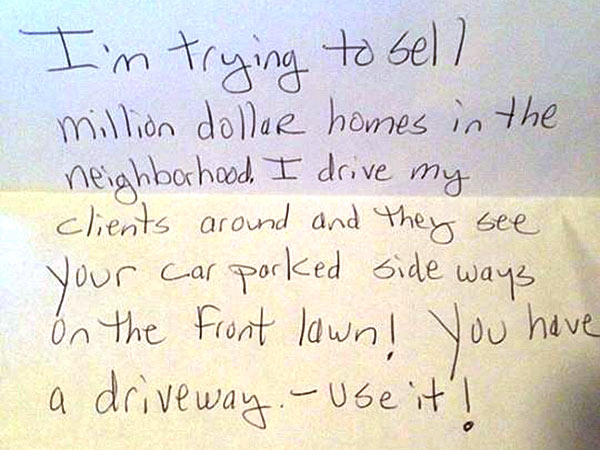 I'm trying to sell
million dollar homes in the
neighborhood. I drive my
clients around and they see
your car parked side ways
on the front lawn! You have
a driveway. - Use it!